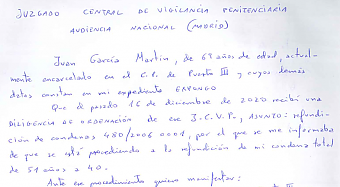 JUZGADO CENTRAL DE VIGILANCIA PENITENCIARIA
AUDIENCIA NACIONAL (MADRID)
Juan García Martín, de 67 años de edad, actual-
mente encarcelado en el C.P. de Puerto III y cuyos demás
datos constan en mi expediente EXPONGO
Que el pasado 16 de diciembre de 2020 recibí una
DILIGENCIA DE ORDENACIÓN de ese J.C.V.P., ASUNTO: refundi-
ción de condenas 480/2006 0001, por el que se me informaba
de que se está procediendo a la refundición de mi condena total
de 51 años a 40.
Ante ese procedimiento quiero manifestar: